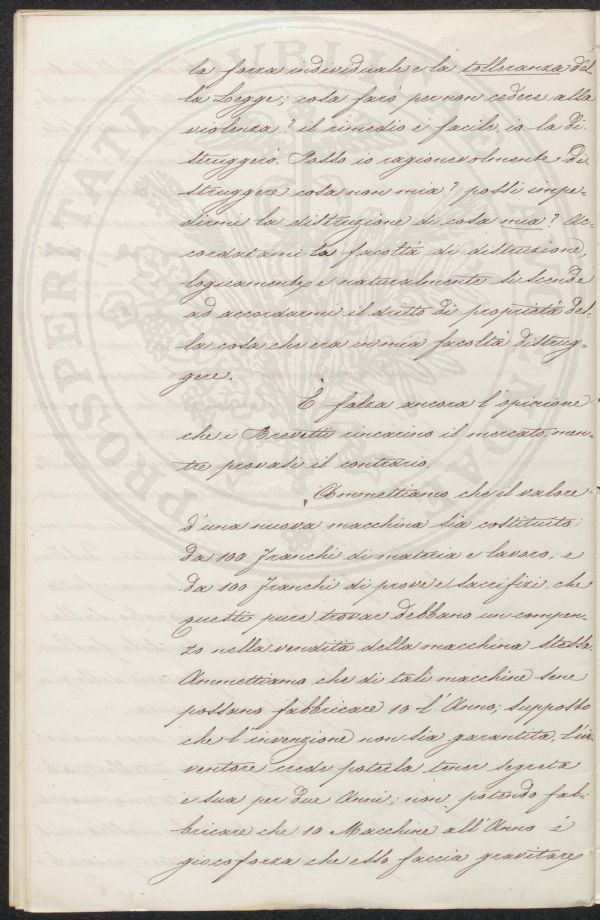 la forza individuale e la tolleranza del-
la Legge; cosa farò per non cedere alla
violenza? il rimedio è facile, io la di-
struggerò. Posso io ragionevolmente di-
struggere cosa non mia? possi impe-
dirmi la distruzione di cosa mia? Ac-
cordatami la facoltà di distruzione,
logicamente e naturalmente si scende
ad accordarmi il dritto di proprietà del-
la cosa che era in mia facoltà distrug-
gere.
È falsa ancora l'opinione
che i Brevetti incarino il mercato, men-
tre provasi il contrario.
Ammettiamo che il valore
d'una nuova macchina sia costituito
da 100 franchi di materia e lavoro, e
da 100 franchi di prove e sacrifizi, che
questi pure trovar debbano un compen-
zo nella vendita della macchina stessa.
Ammettiamo che di tali macchine sene
possano fabbricare 10 l'Anno; supposto
che l'invenzione non sia garantita, l'in-
ventore crede poterla tener segreta
e sua per due Anni; non potendo fab-
bricare che 10 Macchine all'Anno è
giocoforza che esso faccia gravitare
PROSPERITATI PUBLICAE